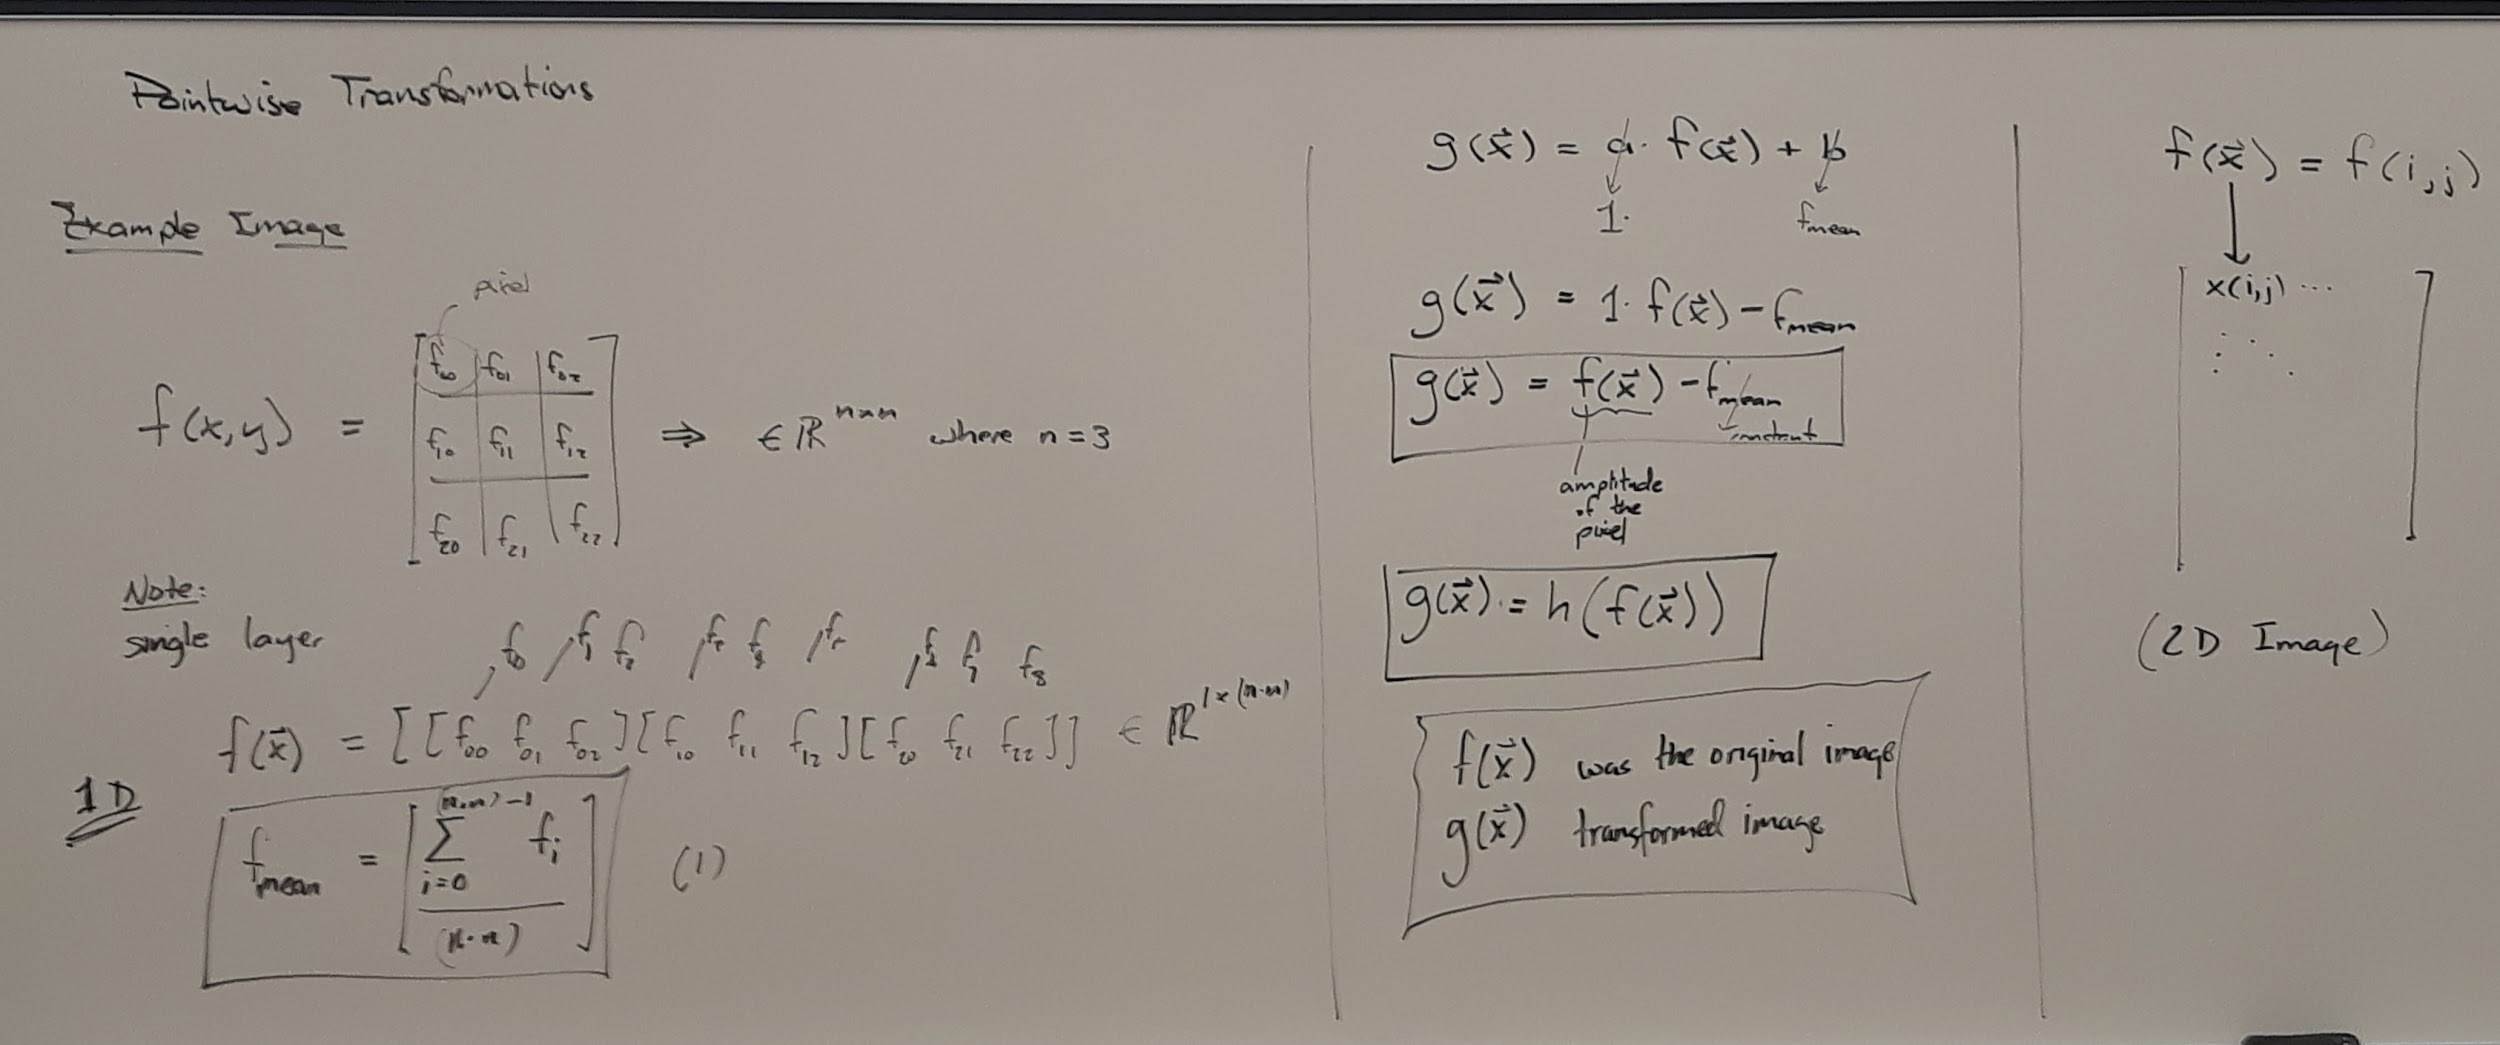 Pointwise Transformations
Example Image
pixel
f(x,y) = [f₀₀ f₀₁ f₀₂
f₁₀ f₁₁ f₁₂
f₂₀ f₂₁ f₂₂] ⇒ ∈ ℝⁿˣⁿ where n = 3
Note:
single layer
f₀ f₁ f₂ f₈
f(x⃗) = [[f₀₀ f₀₁ f₀₂][f₁₀ f₁₁ f₁₂][f₂₀ f₂₁ f₂₂]] ∈ ℝ^1×(n·n)
1D
f_mean = [ (n·n)-1 ∑ i=0 fᵢ
(n·n) ] (1)
g(x⃗) = a· f(x⃗) + b
1· f_mean
g(x⃗) = 1· f(x⃗) - f_mean
g(x⃗) = f(x⃗) - f_mean
constant
amplitude
of the
pixel
g(x⃗) = h(f(x⃗))
f(x⃗) was the original image
g(x⃗) transformed image
f(x⃗) = f(i,j)
x(i,j) ...
(2D Image)